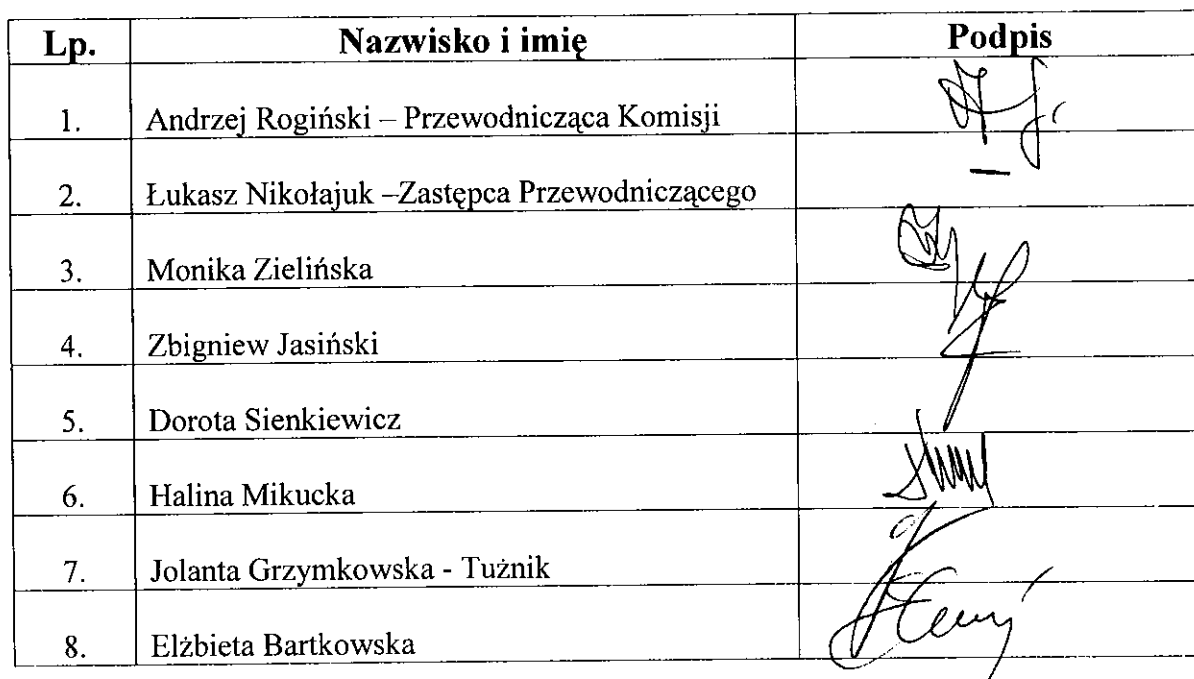 Lp. Nazwisko i imię Podpis
1. Andrzej Rogiński – Przewodnicząca Komisji
2. Łukasz Nikołajuk –Zastępca Przewodniczącego –
3. Monika Zielińska
4. Zbigniew Jasiński
5. Dorota Sienkiewicz
6. Halina Mikucka
7. Jolanta Grzymkowska - Tużnik
8. Elżbieta Bartkowska